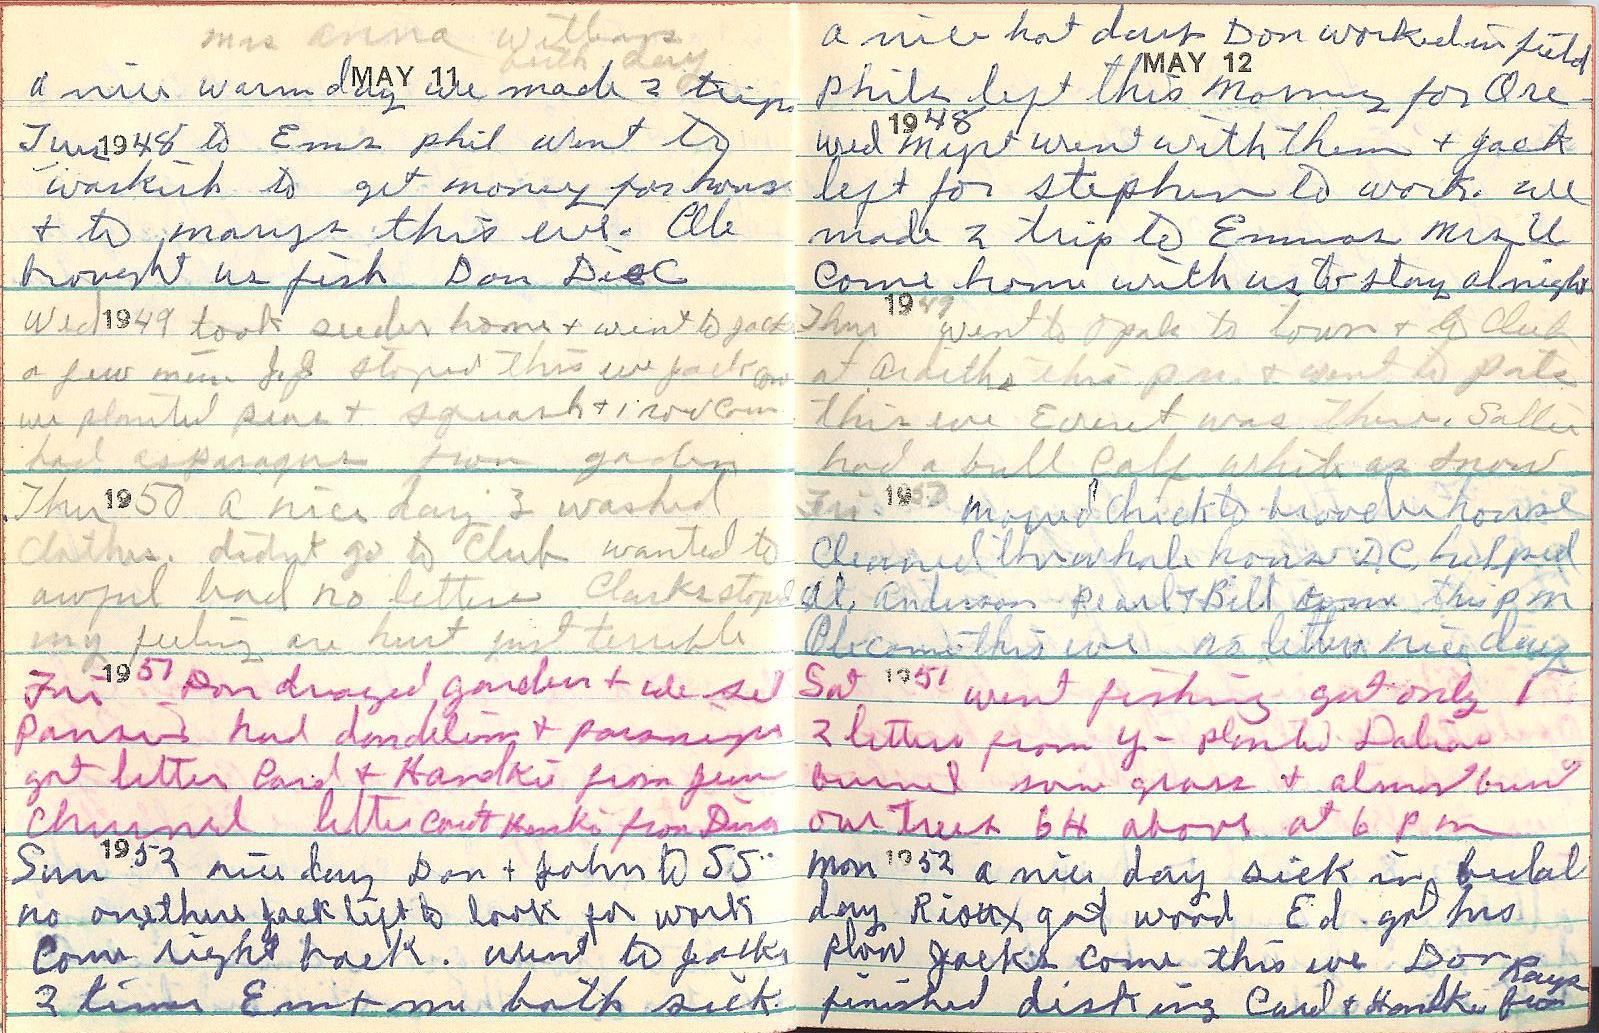 mrs anna
birth day
MAY 11
a nice warm day we made 2 trips
Tues 1948 to Ems phil went to
waskish to get money for house
+ to marys this eve. Ole
brought us fish Don Disc
Wed 1949 took seeder home + went to Jacks
a few min J.J. stoped this eve Jack
we planted peas + squash + 1 row corn
had asparagus from garden
Thur 1950 a nice day I washed
clothes. didnt go to Club wanted to
awful bad no letter Clarks stoped
my feeling are hurt just terrible
Fri 1951 Don draged garden + we set
Pansies had dandelions + parsnips
got letter Card + Hankie from
letter Card Hanki from
Sun 1952 nice day Don + John to 55
no one there Jack left to look for work
Come right back. went to Jacks
2 times Em + me both sick.
a nice hot day Don worked in field
MAY 12
Phils left this Morning for Ore
Wed 1948 went with them + Jack
left for stephen to work. we
made 2 trip to Emmas Mrs U
Come home with us to stay al night
Thur 1949 went to Opals to town + to Club
at this pm + went to Pals
this eve Everet was there. Sallie
had a bull Calf white as snow
Fri 1950 moved Chick to brooder house
Cleaned the whole house D.C. helped
Al. Anderson Pearl + Bill come this pm
Ole come this eve no letter nice day
Sat 1951 went fishing got only 1
2 letters from planted Dalias
burned some grass + almost burnt
our trees 64 above at 6 pm
Mon 1952 a nice day sick in bed al
day Rioux got wood Ed. got his
plow Jacks come this eve Don
finished disking Card + Hankie from
Rays